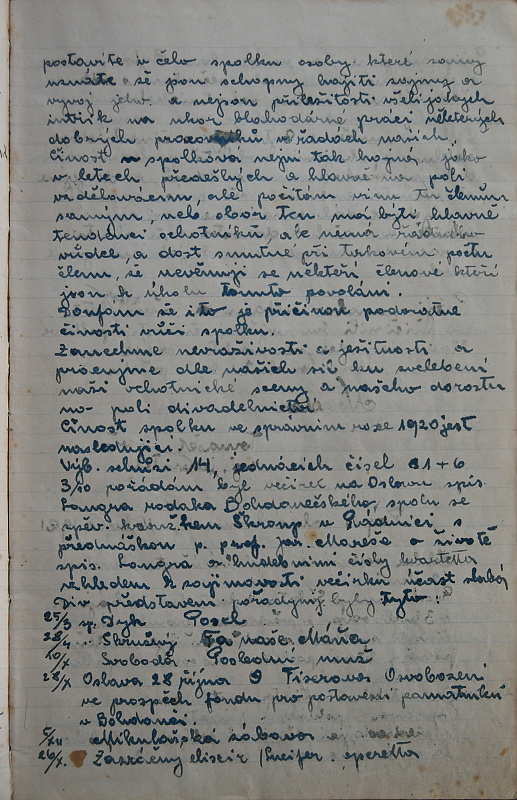 postavíte v čelo spolku osoby které samy
uznáte že jsou schopny hájiti zájmy a
vývoj jeho a nejsou příležitostí všelijakých
intrik na úkor blahodárné práci některých
dobrých pracovníků v řadách našich.
Činost spolková nejni tak hojná jako
v letech předešlých a hlavně na poli
vzdělávacím, ale počítám vinu tu členům
samým, nebo obor ten má býti hlavně
tendencí ochotníků, ale nemá řádného
vůdce, a dost smutné při takovém počtu
členů, že nevěnují se někteří členové kteří
jsou k úkolu tomuto povoláni.
Doufám že i to je příčinou podvratné
činosti vůči spolku.
Zanechme nevraživosti a ješitnosti a
pracujme dle našich sil ku zvelebení
naší ochotnické sceny a našeho dorostu
na poli divadelnictví
Činost spolku ve správním roce 1920 jest
následující.
Výb. schůzí 14, jednacích čísel 81+6
3/10 pořádán byl večírek na Oslavu spis.
Longra rodáka Bohdanečského, spolu se
zpěv. kruž. hem Škroup v Radnici s
přednáškou p. prof. Jar. Mareše o životě
spis. Longra a hudebními čísly kvartetta
vzhledem k zajímavosti večírku účast slabá
Div. představení pořádány byly tyto:
25/3 sp. Dyk Posel
28/4 Skružný Ta naše Máňa
10/X Svoboda Poslední muž
28/X Oslava 28 října Fixrova Osvobození
ve prospěch fondu pro postavení památníku
v Bohdanči.
5/XII Mikulášská zábava
26/X. Zázračný elixir Lucifer operetta